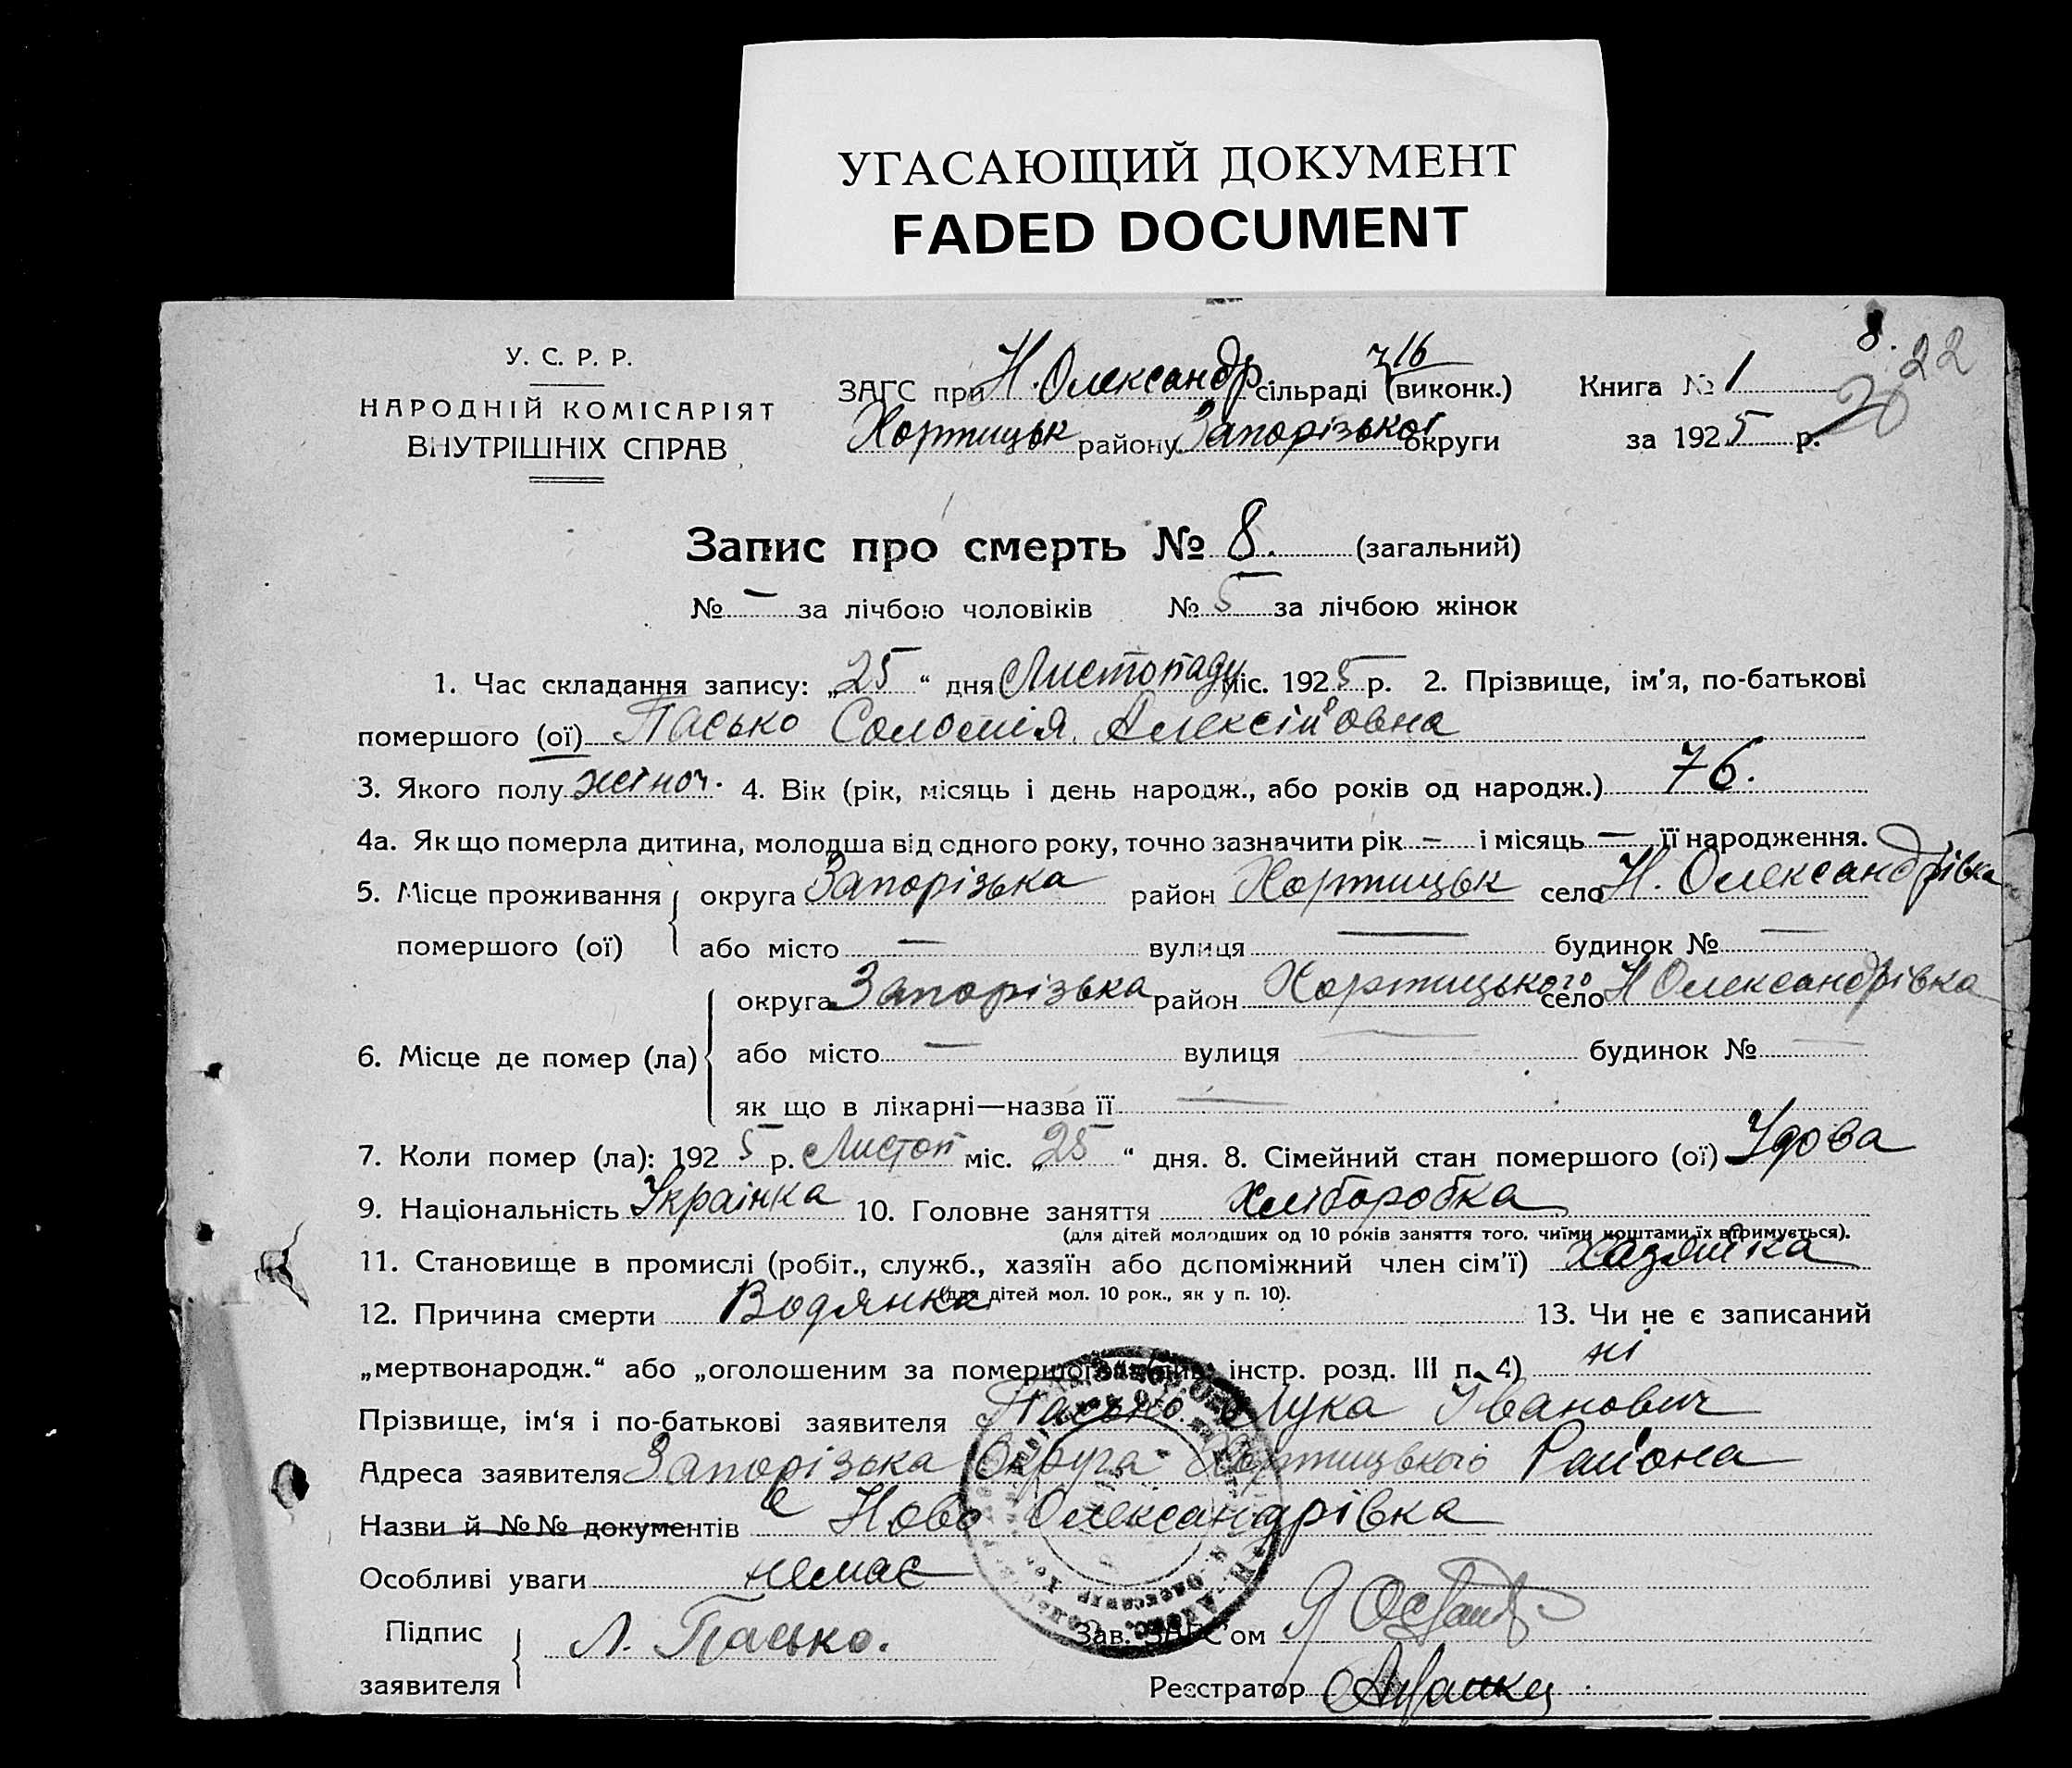 УГАСАЮЩИЙ ДОКУМЕНТ
FADED DOCUMENT
8.
22
20
У. С. Р. Р.
НАРОДНІЙ КОМІСАРІЯТ
ВНУТРІШНІХ СПРАВ
716
ЗАГС при Н. Олександр. сільраді (виконк.) Книга № 1
Хортицьк району Запорізької округи за 1925 р.
Запис про смерть № 8. (загальний)
№ — за лічбою чоловіків № 5 за лічбою жінок
1. Час складання запису: „25“ дня Листопаду міс. 1925 р. 2. Прізвище, ім'я, по-батькові
помершого (ої) Пасько Соломія Алексійовна
3. Якого полу жіноч. 4. Вік (рік, місяць і день народж., або років од народж.) 76.
4а. Як що померла дитина, молодша від одного року, точно зазначити рік — і місяць — її народження.
5. Місце проживання помершого (ої) округа Запорізька район Хортицьк село Н. Олександрівка
або місто — вулиця — будинок № —
6. Місце де помер (ла) округа Запорізька район Хортицького село Н Олександрівка
або місто — вулиця — будинок № —
як що в лікарні—назва її —
7. Коли помер (ла): 1925 р. Листоп міс. „25“ дня. 8. Сімейний стан помершого (ої) Удова
9. Національність Українка 10. Головне заняття Хліборобка
(для дітей молодших од 10 років заняття того, чиїми коштами їх втримується).
11. Становище в промислі (робіт., служб., хазяїн або допоміжний член сім'ї) хазяйка
(для дітей мол. 10 рок., як у п. 10).
12. Причина смерти Водянка 13. Чи не є записаний
„мертвонародж.“ або „оголошеним за помершого інстр. розд. III п. 4) ні
Прізвище, ім'я і по-батькові заявителя Пасько Лука Іванович
Адреса заявителя Запорізька Округа Хортицького Района
Назви й №№ документів с Ново Олександрівка
Особливі уваги немає
Підпис заявителя Л. Пасько.
Зав. ЗАГС'ом
Реєстратор